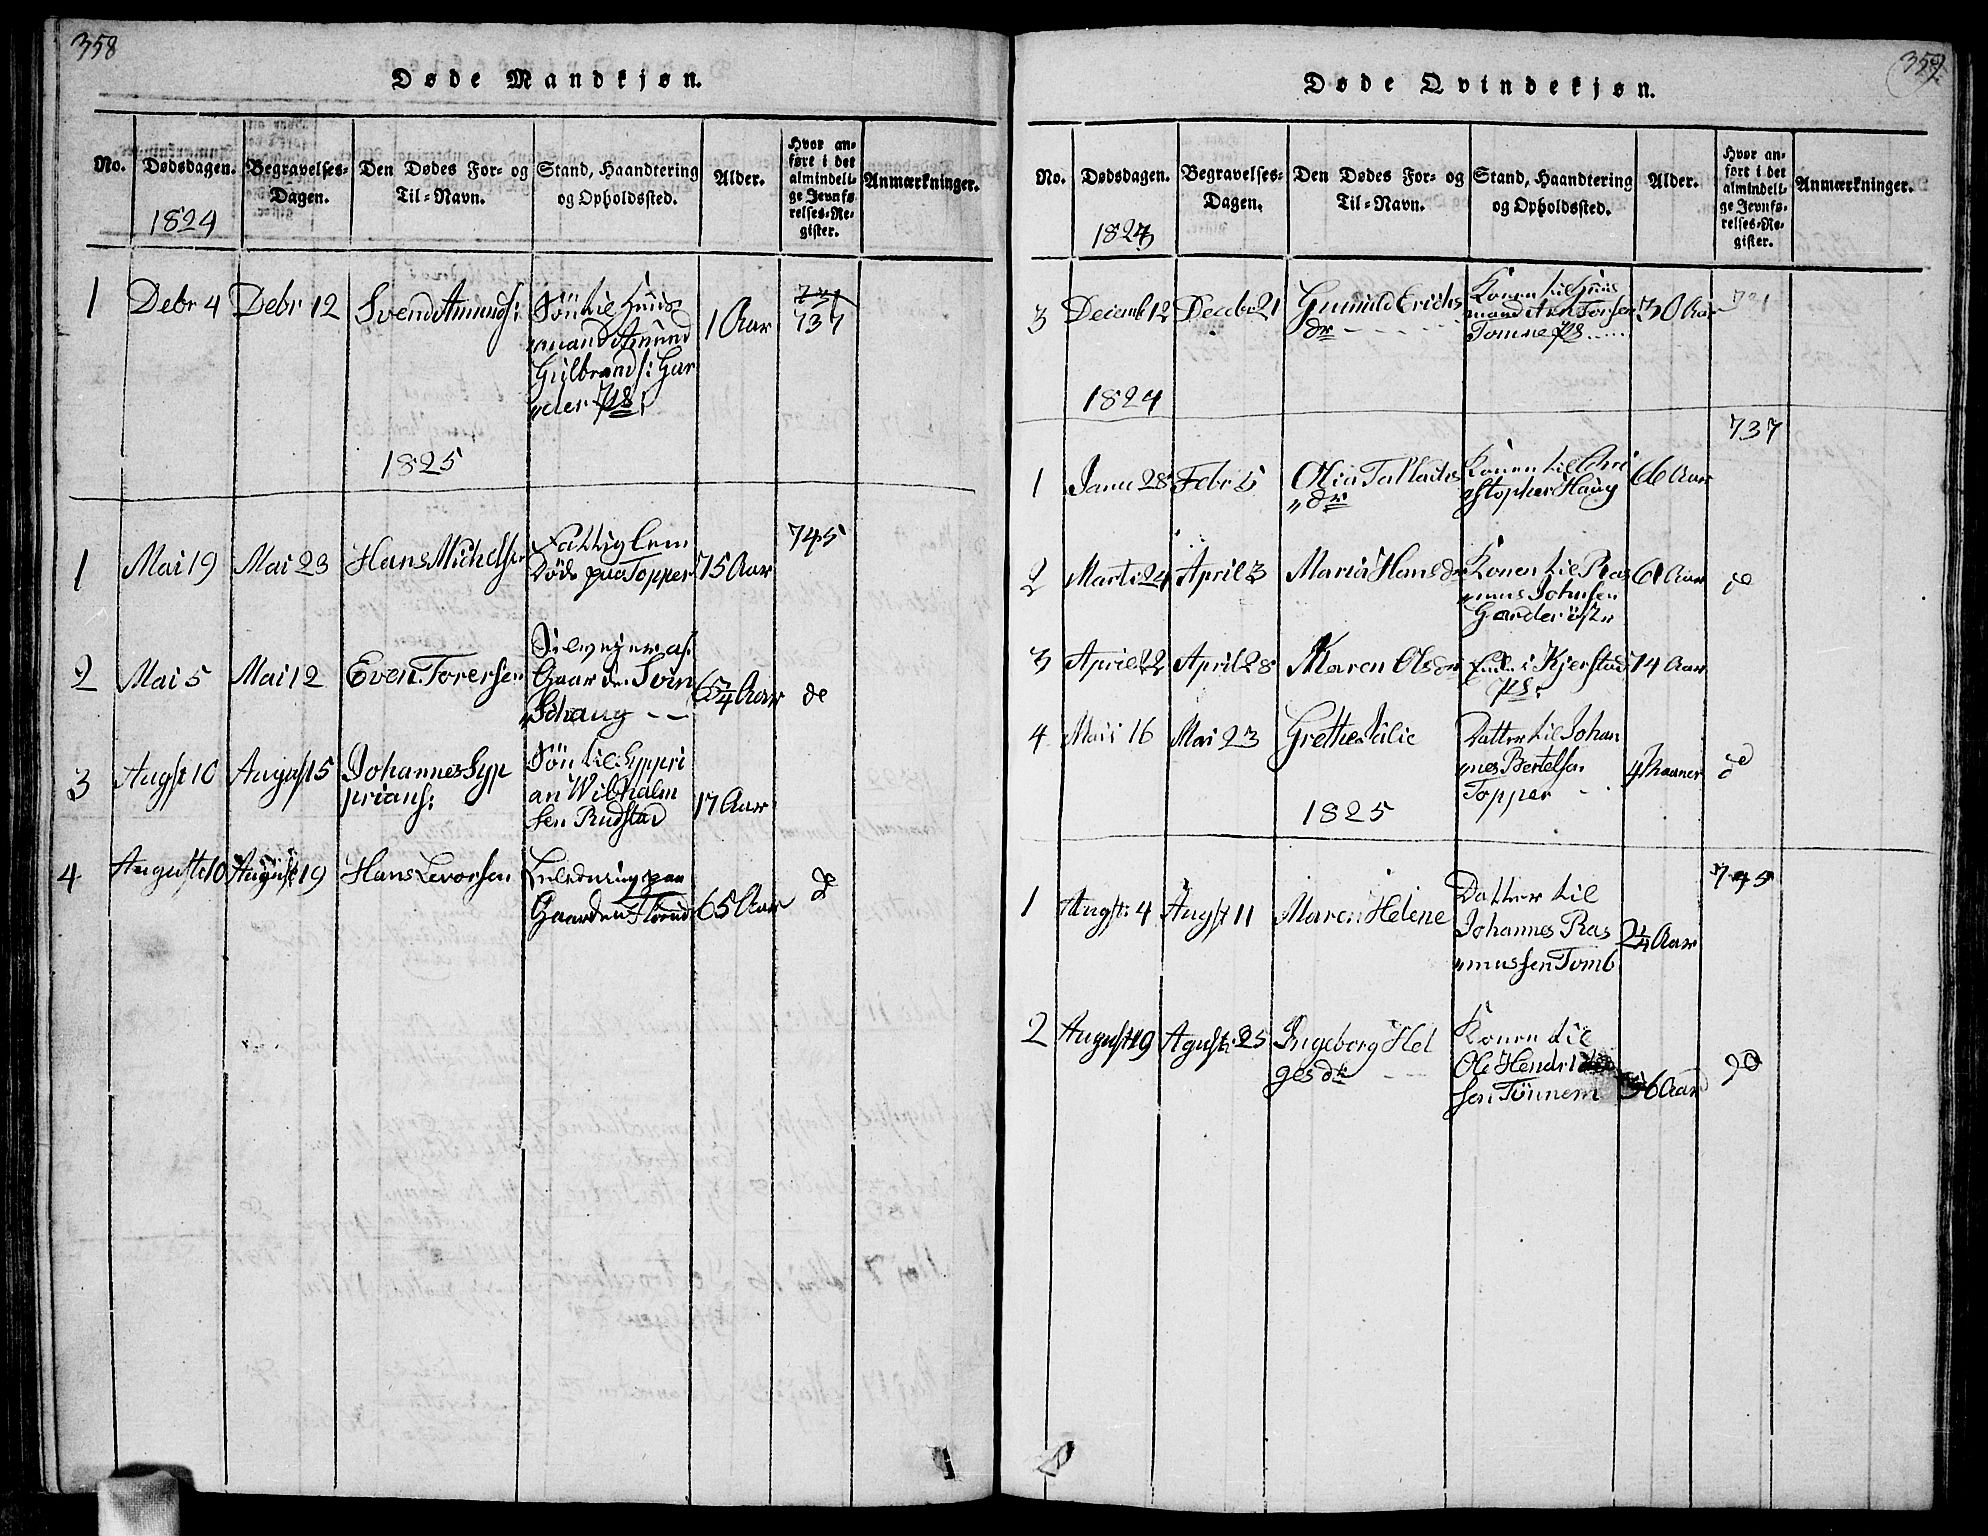 358
Døde Mandkjøn.
No.
Dødsdagen.
Begravelses-
Dagen.
Den Dødes For- og
Til-Navn.
Stand, Haandtering
og Opholdssted.
Alder.
Hvor an-
ført i det
almindeli-
ge Jevnfø-
relses-Re-
gister.
Anmærkninger.
1824
1
Debr 4
Debr 12
Svend Amunds:
Sön til Huus
mand Amund
Gulbrands: Gar
der
1 Aar
731
737
1825
1
Mai 19
Mai 23
Hans Michelsen
Fattiglem
Död paa Topper
75 Aar
745
2
Mai 5
Mai 12
Even Torersen
Gaarden Svin
Schaug
6 3/4 Aar
do
3
Augst 10
August 15
Johannes Syp
prians:
Sön til Syppri
an Wilhalm
sen Rudstad
17 Aar
4
August 10
August 19
Hans Levorsen
Inlederingspaa
Gaarden
65 Aar
do
359
Døde Qvindekjøn.
No.
Dødsdagen.
Begravelses-
Dagen.
Den Dødes For- og
Til-Navn.
Stand, Haandtering
og Opholdssted.
Alder.
Hvor an-
ført i det
almindeli-
ge Jevnfø-
relses-Re-
gister.
Anmærkninger.
1823
3
Decemb 12
Decebr 21
Gunild Erichs
dr
Konen til Huus
mand Torsen
Tomne
30 Aar
731
1824
737
1
Janu 28
Febr 5
Olia Tallachs
dr
Konen til Chri
stopher Haug
66 Aar
2
Marti 24
April 3
Maria Hansdr
Konen til Ras
mus Johnsen
Garder öst
61 Aar
do
3
April 22
April 28
Maren Olsdr
i Kjerstad
74 Aar
4
Mai 16
Mai 23
Grethe Julie
Datter til Johan
nes Bertelsen
Topper
4 Maaner
do
1825
745
1
Augst: 4
Augst 11
Maren Helene
Datter til
Johannes Ras
mussen Tomb
2 1/4 Aar
2
August 19
Agust: 25
Ingeborg Hel
gesdtr
Konen til
Ole Hendrich
sen Tönnem
36 Aar
do